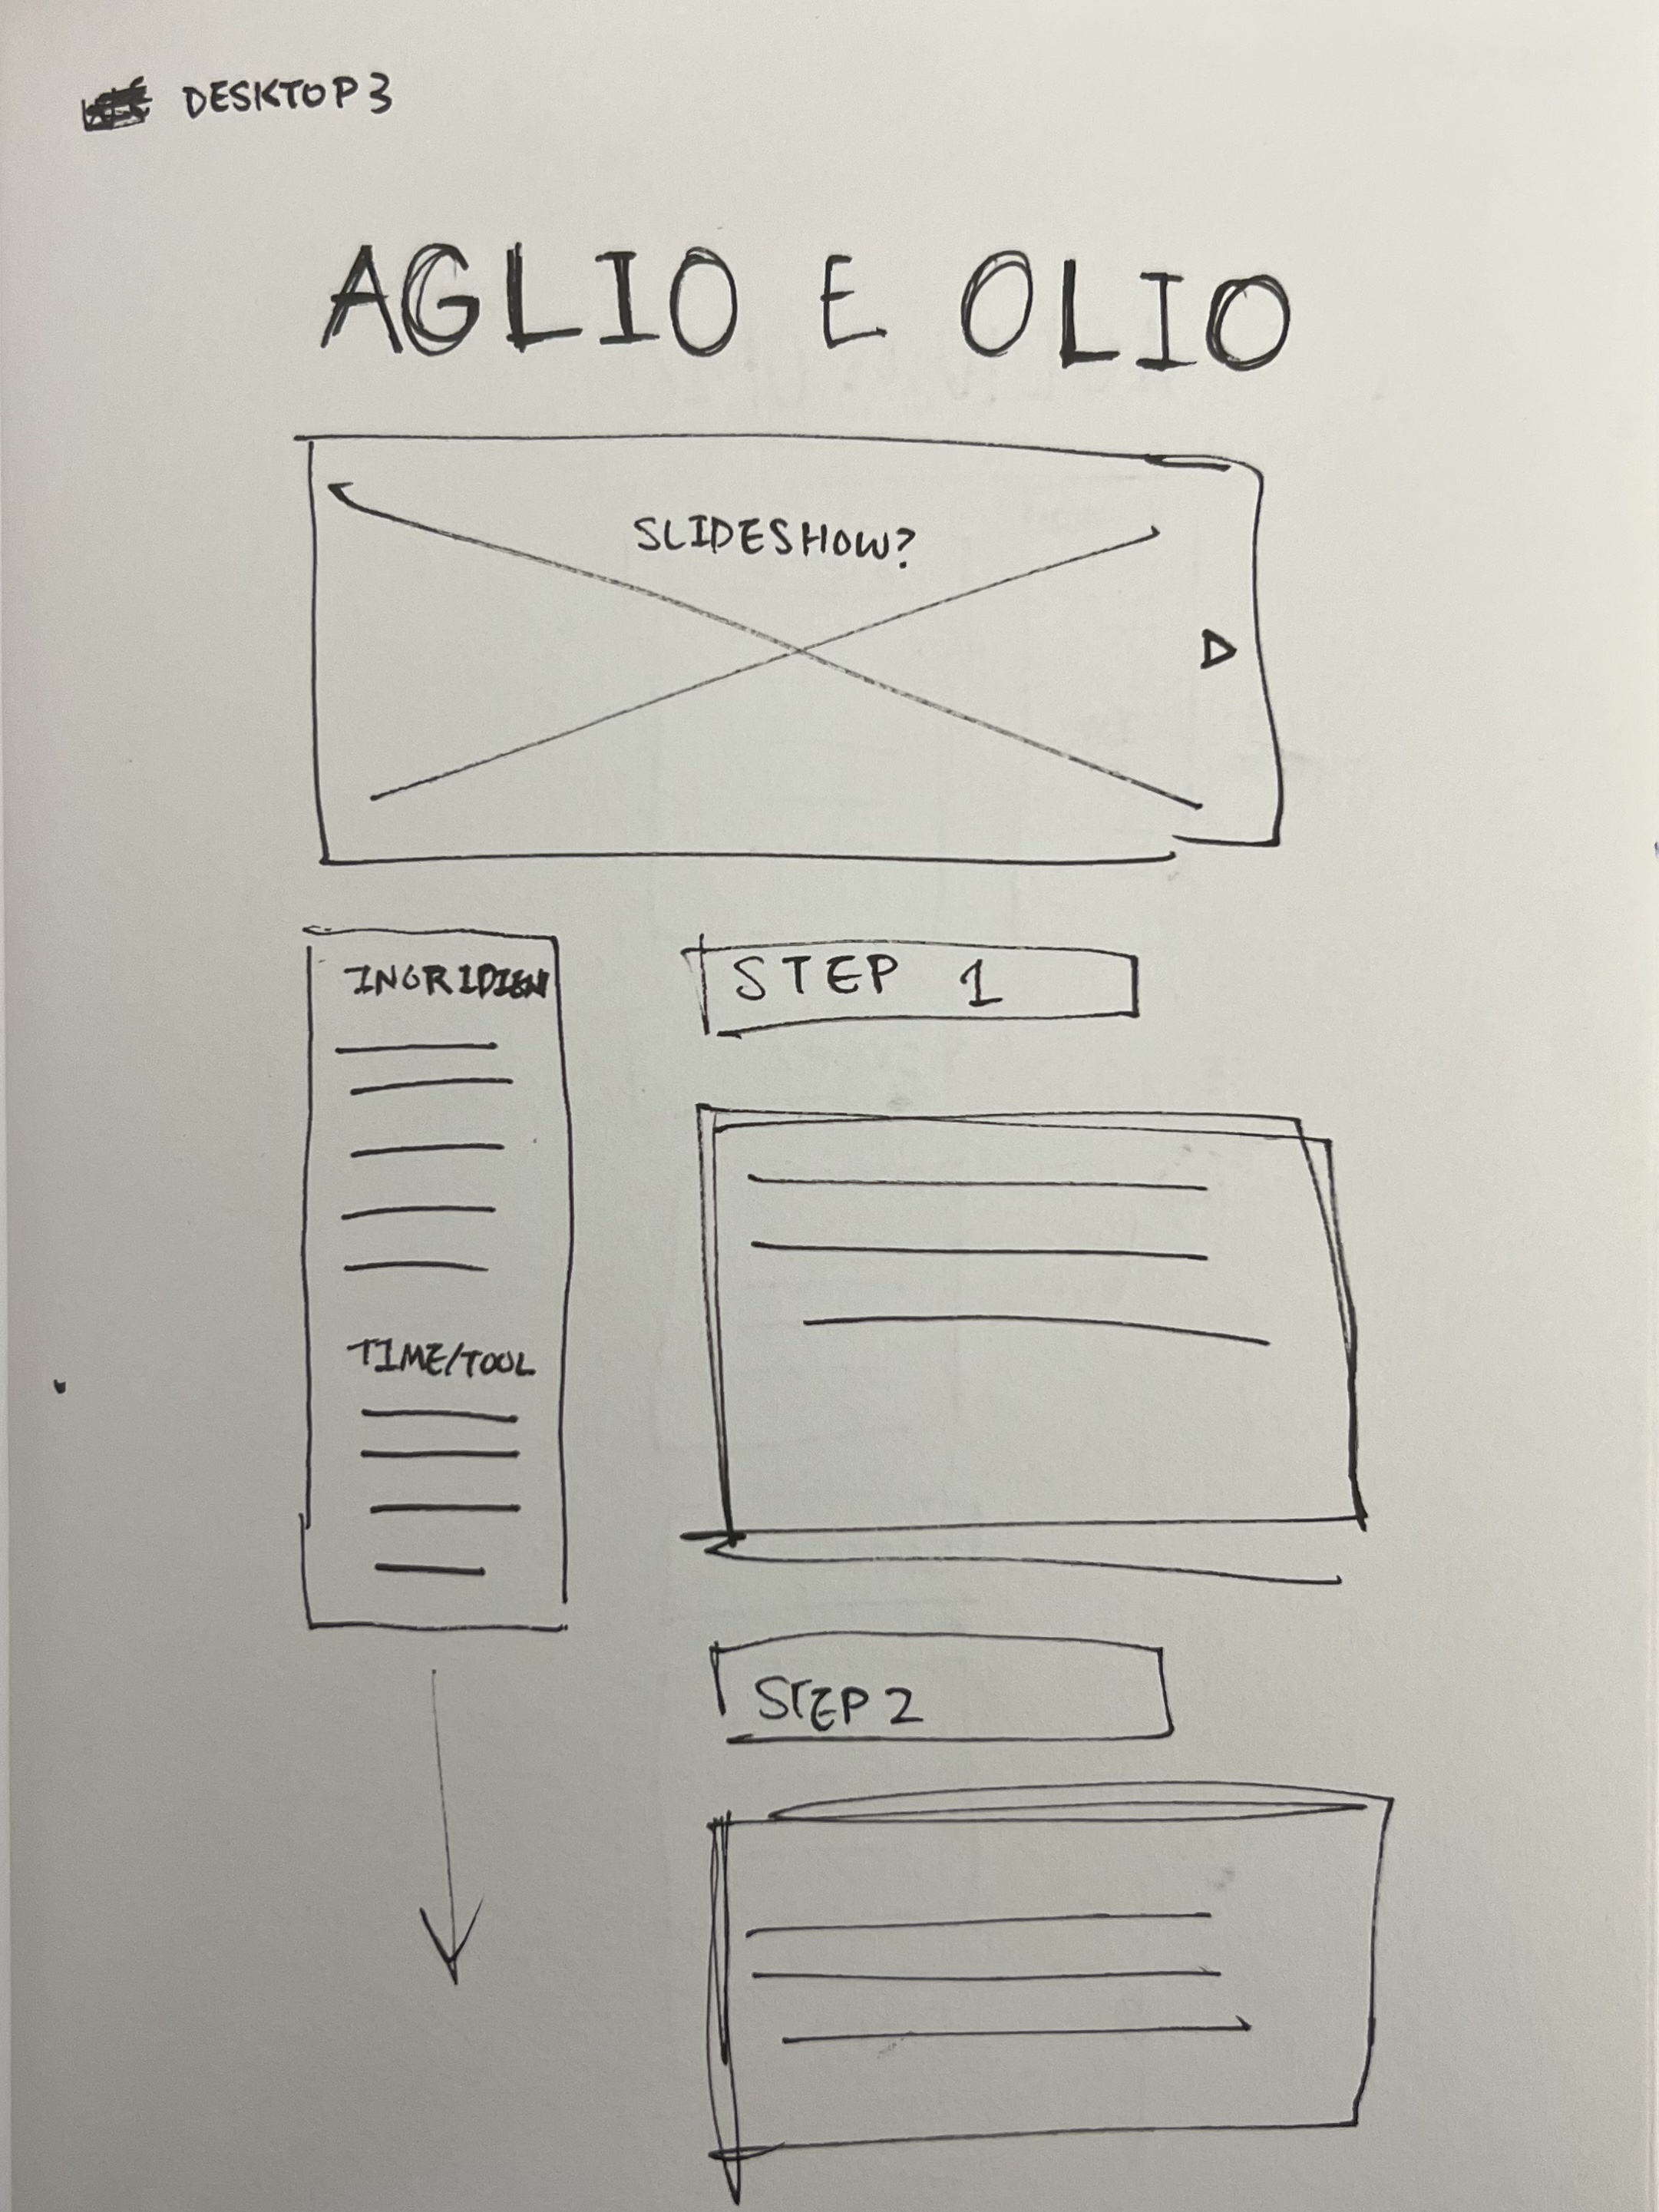 DESKTOP 3
AGLIO E OLIO
SLIDESHOW?
INGRIDIEN
STEP 1
TIME/TOOL
STEP 2